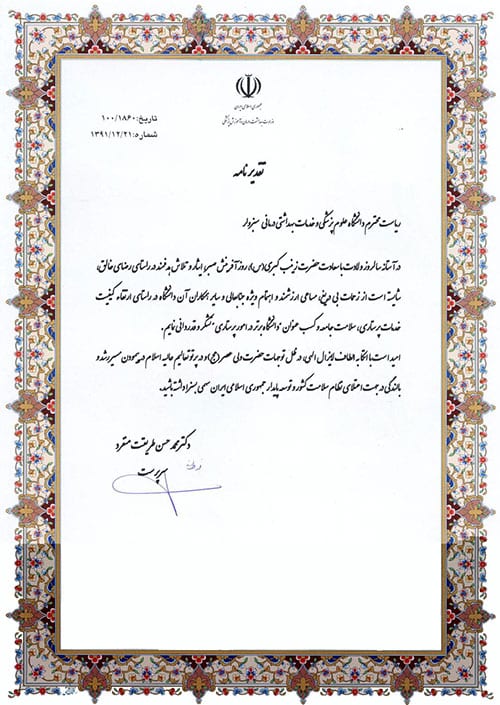 جمهوری اسلامی ایران
وزارت بهداشت، درمان و آموزش پزشکی
تاریخ: ۱۰۰/۱۸۶۰
شماره: ۱۳۹۱/۱۲/۲۱
تقدیرنامه
ریاست محترم دانشگاه علوم پزشکی و خدمات بهداشتی درمانی سبزوار
در آستانه سالروز ولادت با سعادت حضرت زینب کبری(س)، روز آفرینش صبر، ایثار و تلاش هدفمند در راستای رضای خالق،
شایسته است از زحمات بی دریغ، مساعی ارزشمند و اهتمام ویژه جنابعالی و سایر همکاران آن دانشگاه در راستای ارتقاء کیفیت
خدمات پرستاری، سلامت جامعه و کسب عنوان "دانشگاه برتر در امور پرستاری" تشکر و قدردانی نمایم.
امید است با اتکا به الطاف لایزال الهی، در ظل توجهات حضرت ولی عصر(عج) و در پرتو تعالیم عالیه اسلام در پیمودن مسیر رشد و
بالندگی در جهت اعتلای نظام سلامت کشور و توسعه پایدار جمهوری اسلامی ایران سهمی بسزا داشته باشید.
دکتر محمد حسن طریقت منفرد
سرپرست